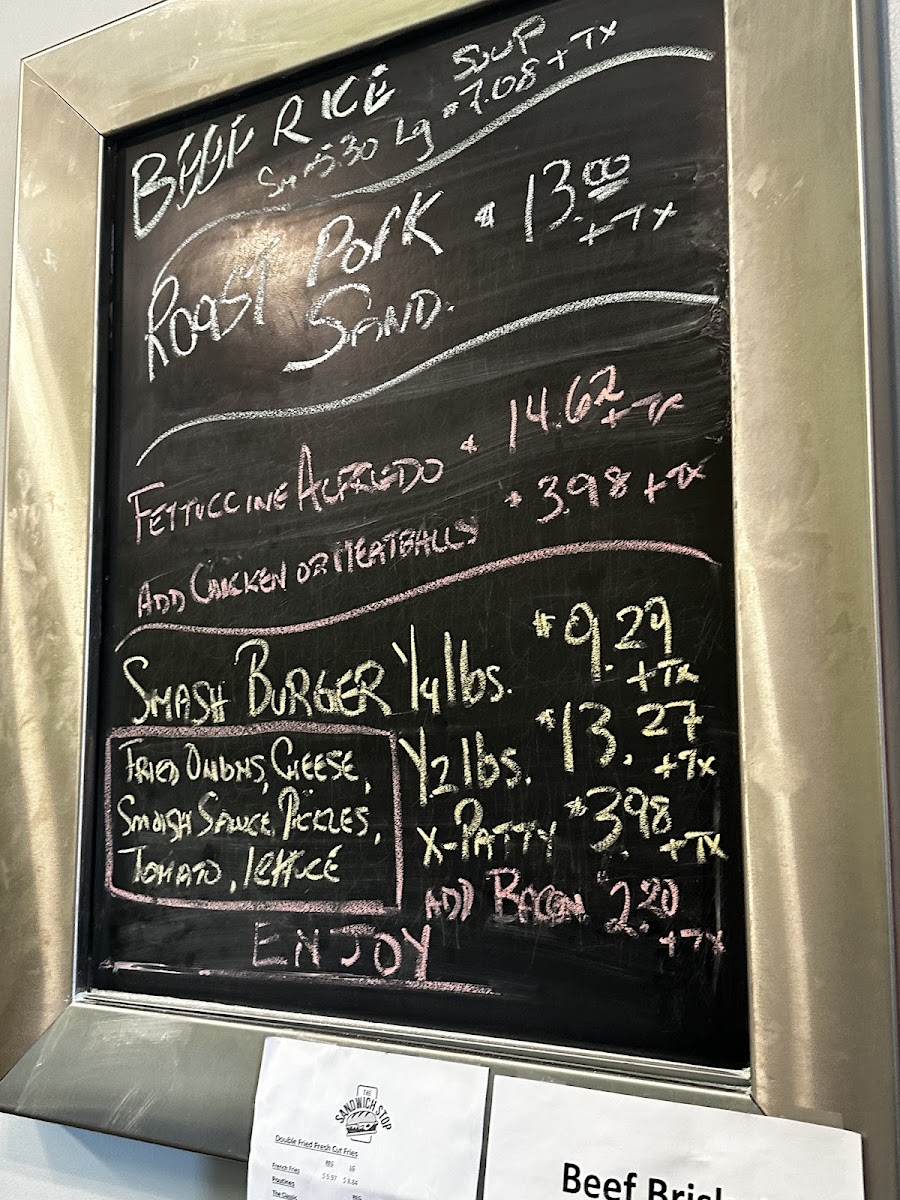 BEEF RICE SOUP
Sm $5.30 Lg $7.08 + TX
ROAST PORK $13.00
+TX
SAND.
FETTUCCINE ALFREDO $14.62
+TX
ADD CHICKEN OR MEATBALLS $3.98 +TX
SMASH BURGER 1/4 lbs. $9.29
+TX
1/2 lbs. $13.27
+TX
X-PATTY $3.98
+TX
ADD BACON 2.20
+TX
FRIED ONIONS, CHEESE,
SMASH SAUCE, PICKLES,
TOMATO, LETTUCE
ENJOY
THE
SANDWICH STOP
Double Fried Fresh Cut Fries
REG LG
French Fries $ 5.97 $ 8.84
Poutines REG
The Classic
Beef Bris